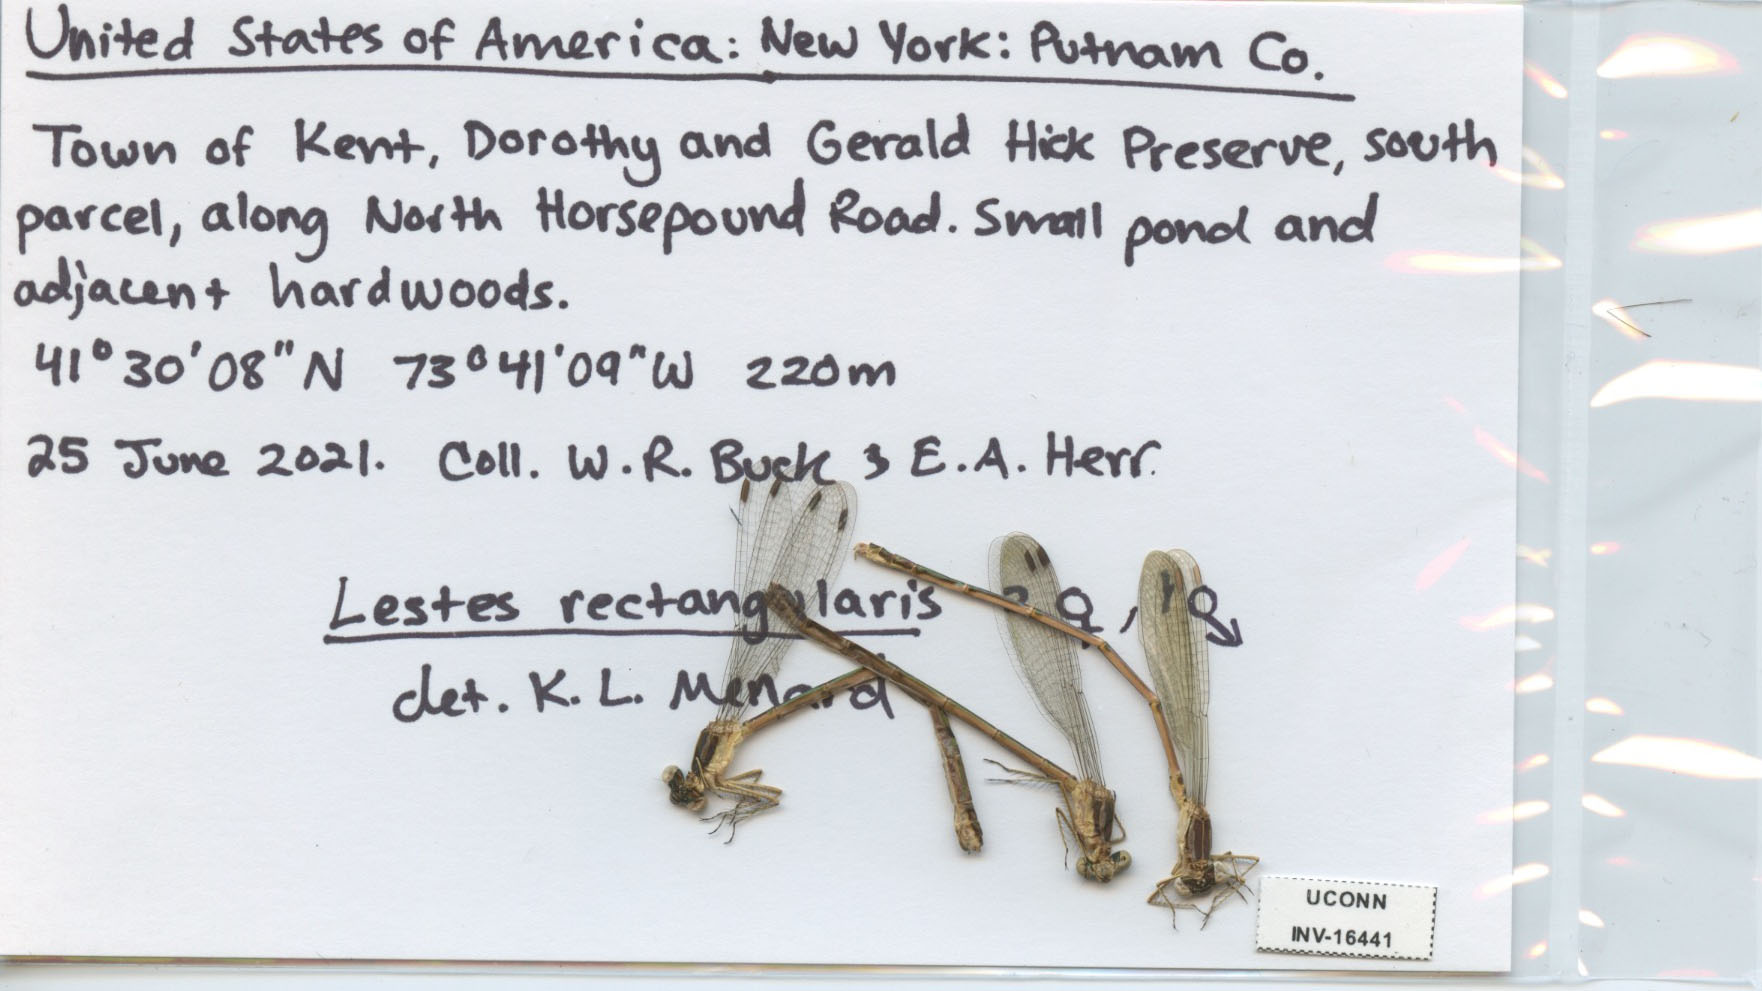 United States of America: New York: Putnam Co.
Town of Kent, Dorothy and Gerald Hick Preserve, south
parcel, along North Horsepound Road. Small pond and
adjacent hardwoods.
41°30'08"N 73°41'09"W 220m
25 June 2021. Coll. W.R. Buck & E.A. Herr.
Lestes rectangularis 2♀, 1♂
det. K. L. Menard
UCONN
INV-16441